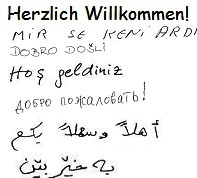 Herzlich Willkommen!
MIR SE KENI ARDH
DOBRO DOŠLI
Hoş geldiniz
добро пожаловать!
أهلاً وسهلاً بكم
به خێر بێن